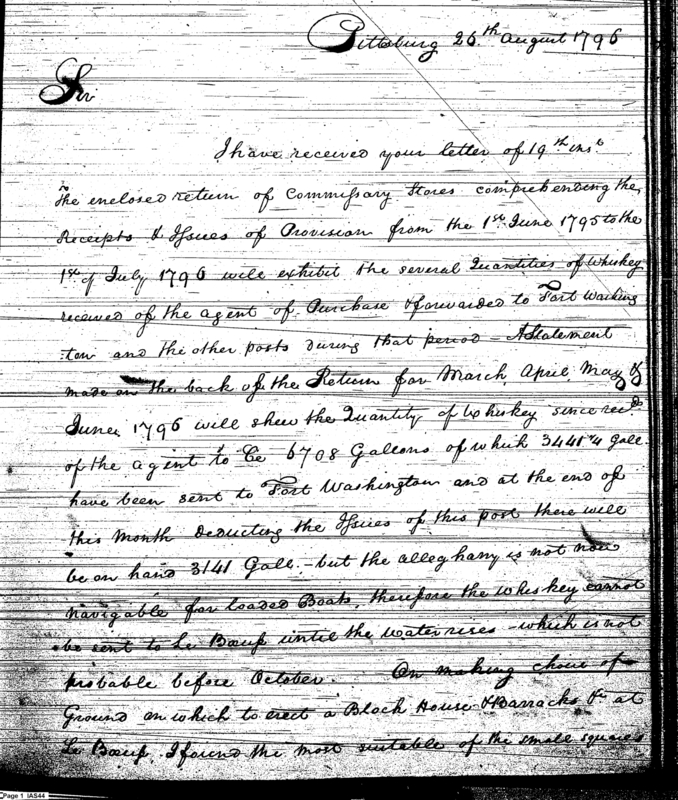 Pittsburg 26.th August 1796
Sir
I have received your letter of 19th inst
The enclosed return of Commissary Stores comprehending the
Receipts & Issues of Provision from the 1st June 1795 to the
1st of July 1796 will exhibit the several Quantities of Whiskey
received of the agent of Purchase & forwarded to Fort Washing
ton and the other posts during that period – A Statement
made on the back of the Return for March, April, May &
June, 1796 will shew the Quantity of Whiskey since recd.
of the agent to be 6708 Gallons of which 3441 1/4 Gall.
have been sent to Fort Washington and at the end of
this Month deducting the Issues of this post there will
be on hand 3141 Gall. – but the alleghany is not now
navigable for loaded Boats, therefore the Whiskey cannot
be sent to Le Bœuf until the water rises – which is not
probable before October. On making choice of
Ground on which to erect a Block House & Barracks &c at
Le Bœuf, I found the most suitable of the small squares
Page 1 IAS44